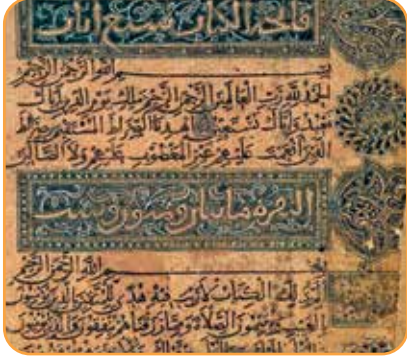 فاتحة الكتاب سبع ايات
بسم الله الرحمن الرحيم
الحمد لله رب العالمين الرحمن الرحيم ملك يوم الدين اياك
نعبد واياك نستعين اهدنا الصراط المستقيم صراط
الذين انعمت عليهم غير المغضوب عليهم ولا الضالين
البقرة مايتان وثمنون وست
بسم الله الرحمن الرحيم
الم ذلك الكتاب لا ريب فيه هدى للمتقين الذين يؤمنون
بالغيب ويقيمون الصلاة ومما رزقناهم ينفقون والذين يؤمنون